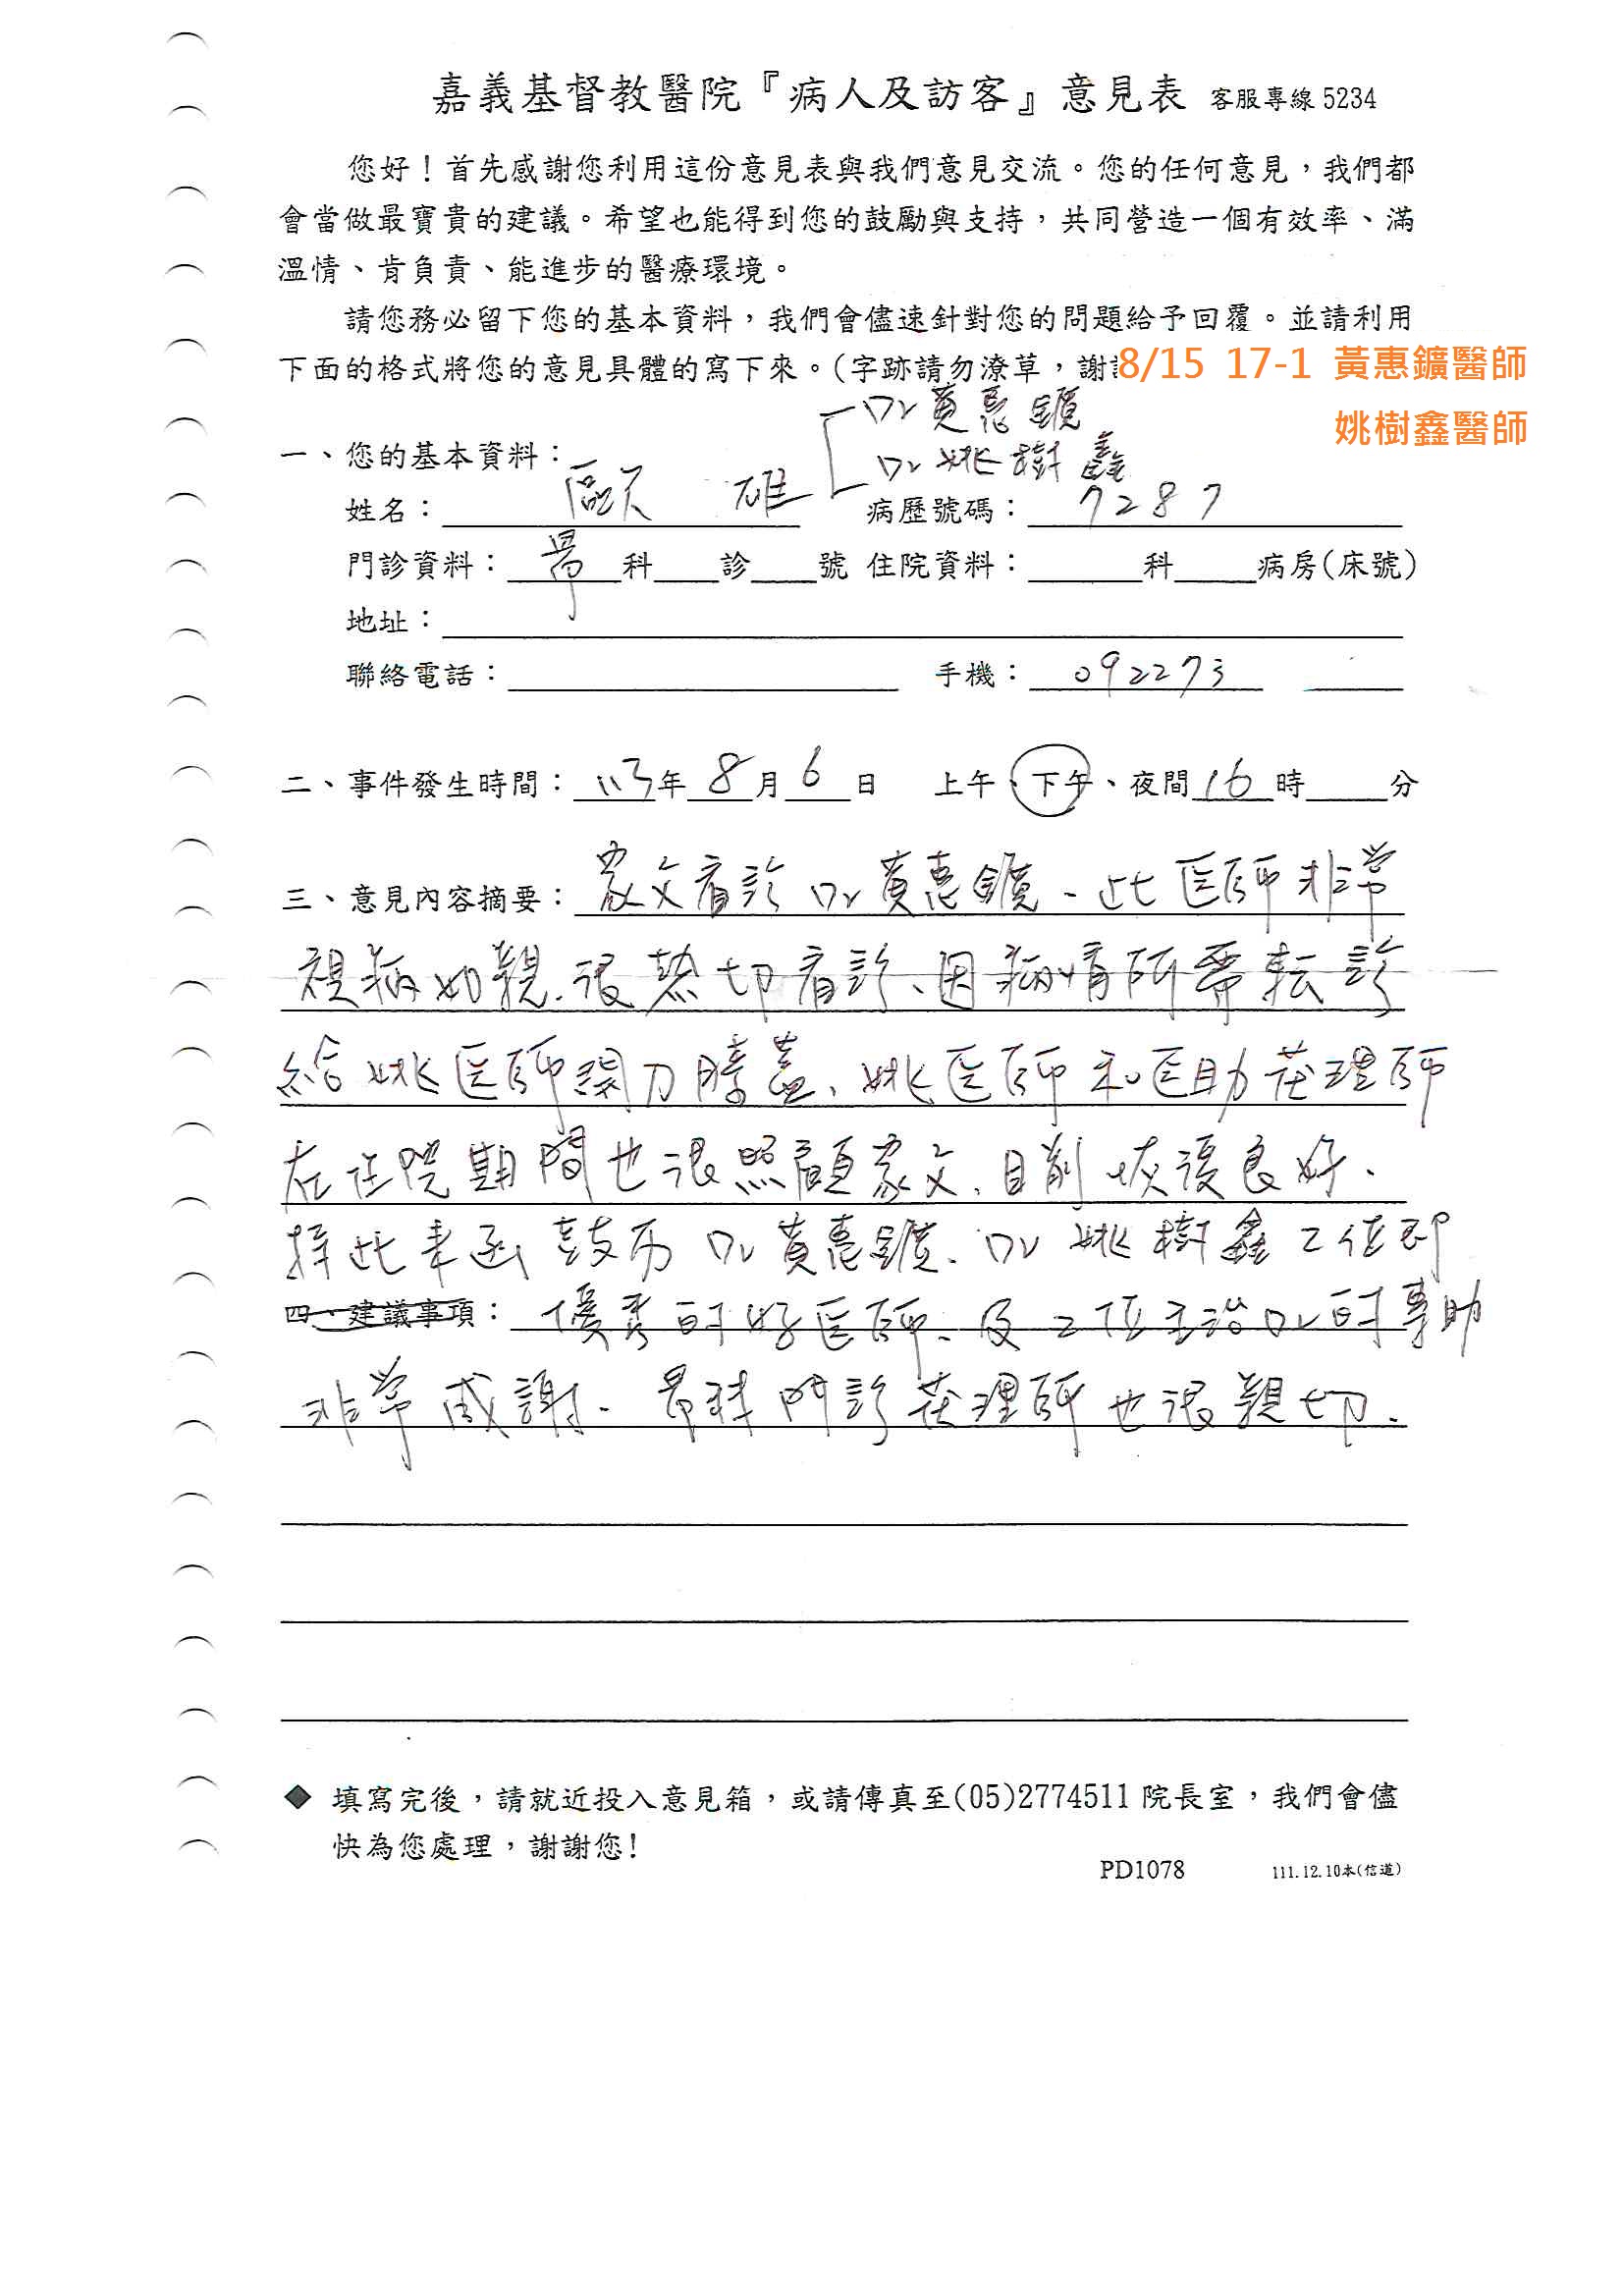 嘉義基督教醫院『病人及訪客』意見表 客服專線 5234
您好！首先感謝您利用這份意見表與我們意見交流。您的任何意見，我們都
會當做最寶貴的建議。希望也能得到您的鼓勵與支持，共同營造一個有效率、滿
溫情、肯負責、能進步的醫療環境。
請您務必留下您的基本資料，我們會儘速針對您的問題給予回覆。並請利用
下面的格式將您的意見具體的寫下來。(字跡請勿潦草，謝
8/15 17-1 黃惠鑛醫師
姚樹鑫醫師
Dr 黃惠鑛
Dr 姚樹鑫
一、您的基本資料：
姓名：歐 雄 病歷號碼：7287
門診資料：骨科 診 號 住院資料： 科 病房(床號)
地址：
聯絡電話： 手機：092273
二、事件發生時間：113年8月6日 上午、下午、夜間16時 分
三、意見內容摘要：家父看診Dr黃惠鑛、此医師非常
視病如親、很熱切看診、因病情所需転診
給姚医師開刀膝蓋、姚医師和医助護理師
在住院期間也很照顧家父、目前恢復良好、
持此書函鼓励Dr黃惠鑛、Dr姚樹鑫2位即
四、建議事項：優秀的好医師、及2位主治Dr的專助
非常感謝、骨科門診護理師也很親切、
◆ 填寫完後，請就近投入意見箱，或請傳真至(05)2774511 院長室，我們會儘
快為您處理，謝謝您！
PD1078 111.12.10本(信道)